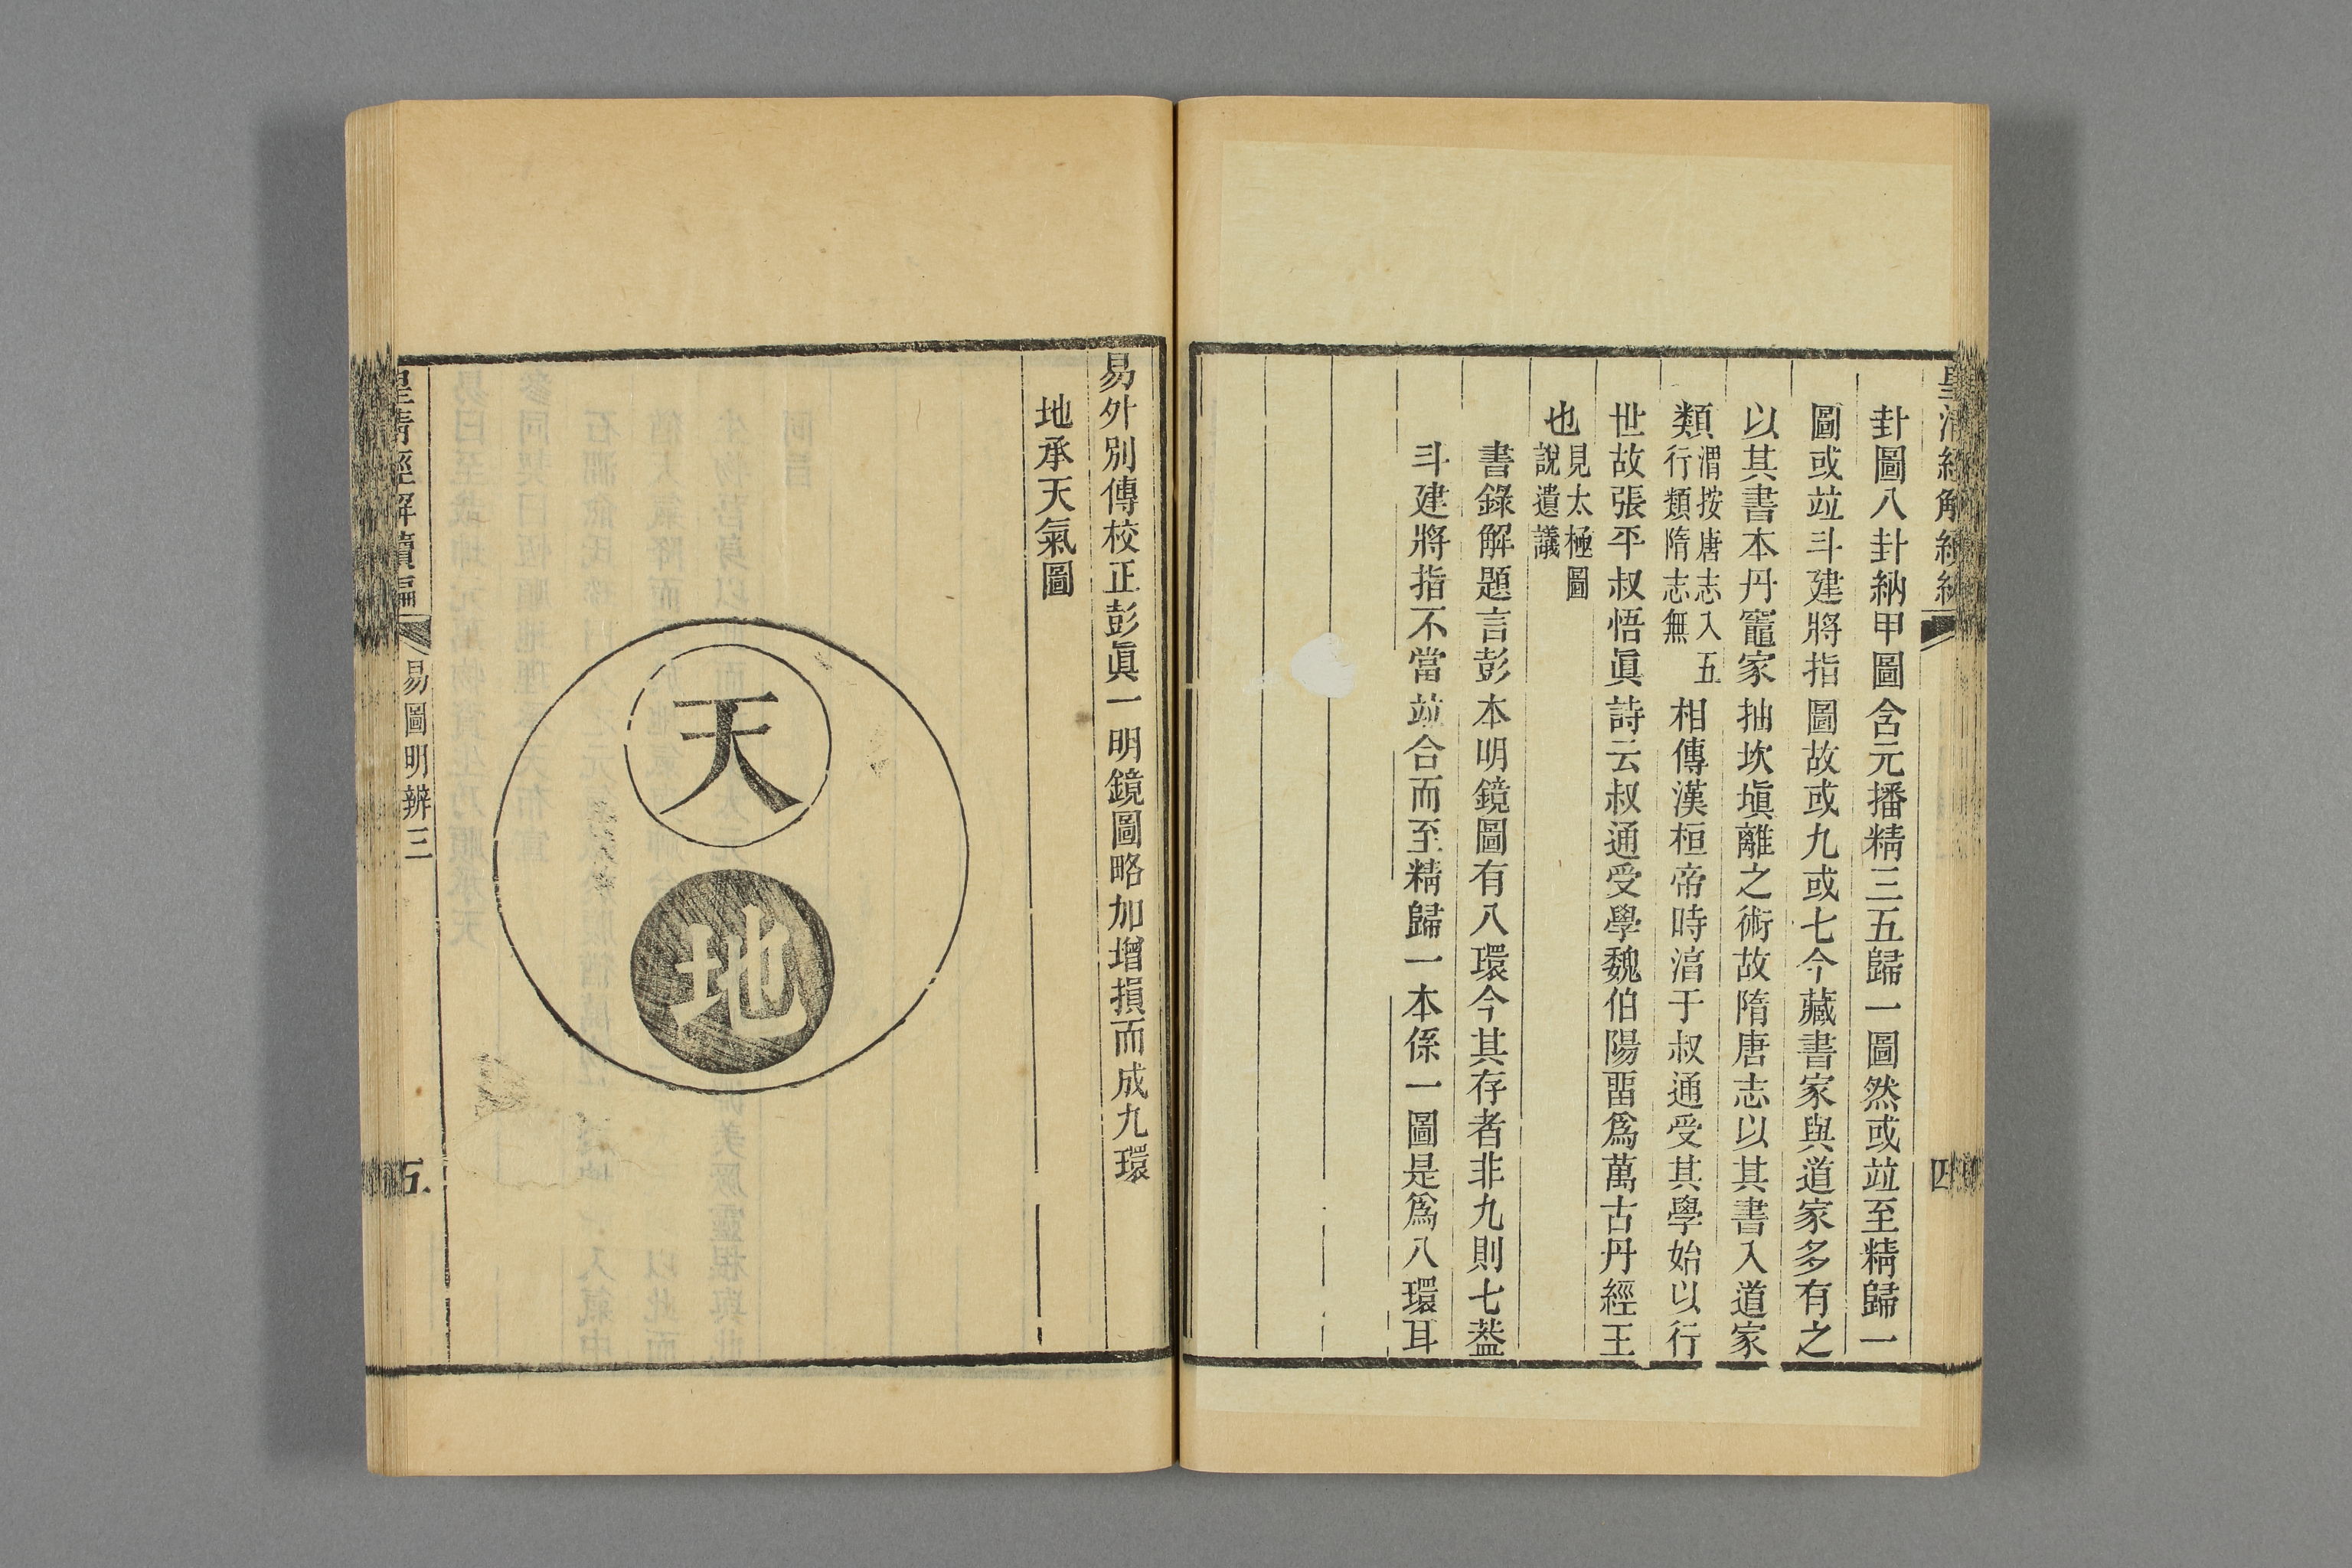 卦圖八卦納甲圖含元播精三五歸一圖然或竝至精歸一
圖或竝斗建將指圖故或九或七今藏書家與道家多有之
以其書本丹竈家抽坎塡離之術故隋唐志以其書入道家
類渭按唐志入五行類隋志無相傳漢桓帝時淯于叔通受其學始以行
世故張平叔悟眞詩云叔通受學魏伯陽畱爲萬古丹經王
也見太極圖說遺議
書錄解題言彭本明鏡圖有八環今其存者非九則七葢
斗建將指不當竝合而至精歸一本係一圖是爲八環耳
四
易外別傳校正彭眞一明鏡圖略加增損而成九環
地承天氣圖
天
地
皇淸經解續編
易圖明辨三
五